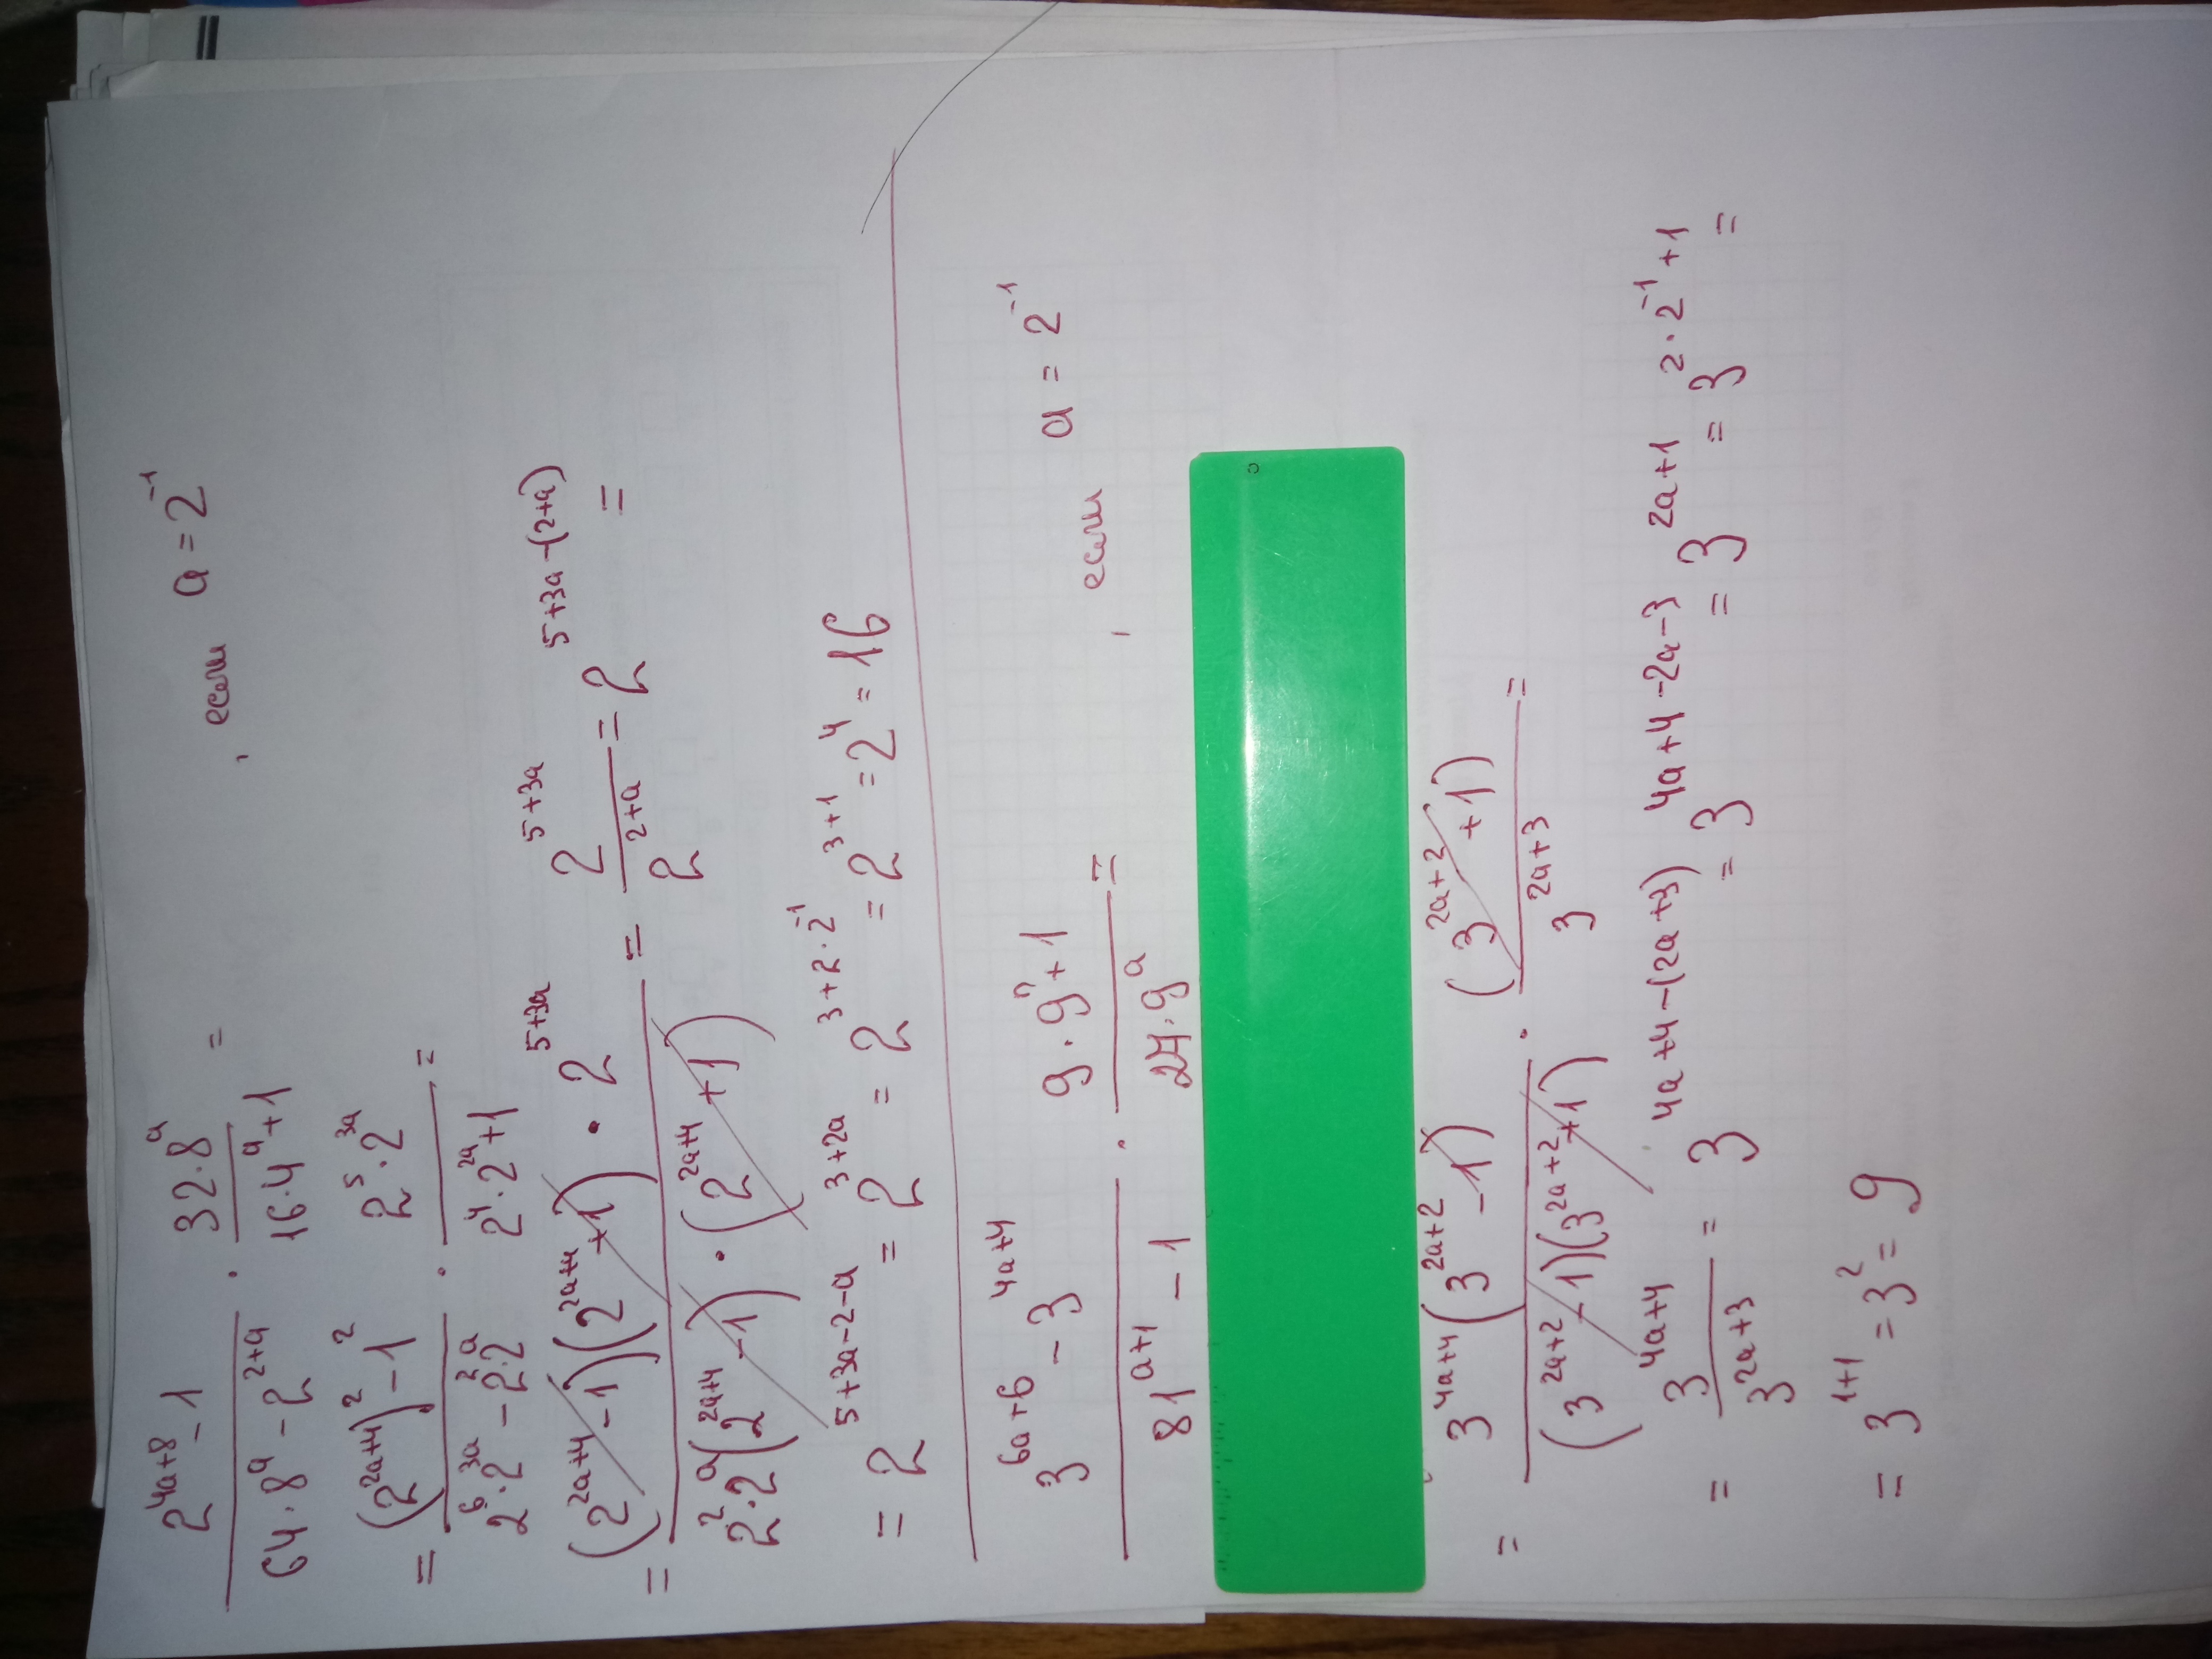 (2^(4a+8) - 1)/(64·8^a - 2^(2+a)) · (32·8^a)/(16·4^a + 1) = , если a = 2^(-1)
= ((2^(2a+4))^2 - 1^2)/(2^6·2^(3a) - 2^2·2^a) · (2^5·2^(3a))/(2^4·2^(2a) + 1) =
= ((2^(2a+4) - 1)(2^(2a+4) + 1) · 2^(5+3a))/(2^2·2^a(2^(2a+4) - 1) · (2^(2a+4) + 1)) = 2^(5+3a)/2^(2+a) = 2^(5+3a-(2+a)) =
= 2^(5+3a-2-a) = 2^(3+2a) = 2^(3+2·2^(-1)) = 2^(3+1) = 2^4 = 16
(3^(6a+6) - 3^(4a+4))/(81^(a+1) - 1) · (9·9^a + 1)/(27·9^a) = , если a = 2^(-1)
= (3^(4a+4)(3^(2a+2) - 1))/((3^(2a+2) - 1)(3^(2a+2) + 1)) · (3^(2a+2) + 1)/3^(2a+3) =
= 3^(4a+4)/3^(2a+3) = 3^(4a+4-(2a+3)) = 3^(4a+4-2a-3) = 3^(2a+1) = 3^(2·2^(-1)+1) =
= 3^(1+1) = 3^2 = 9